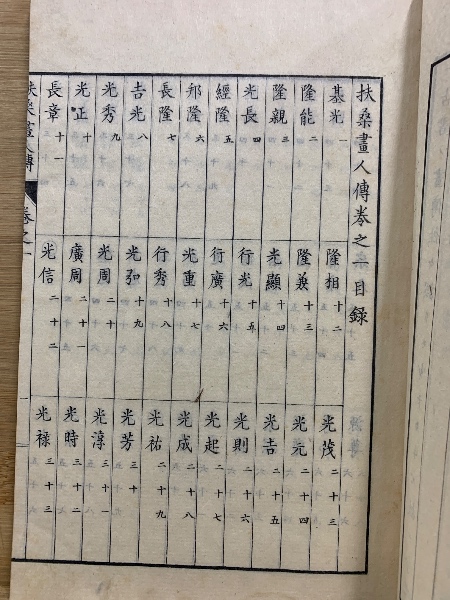 扶桑畫人傳卷之一目録
基光 一
隆能 二
隆親 三
光長 四
經隆 五
邦隆 六
長隆 七
吉光 八
光秀 九
光正 十
長章 十一
隆相 十二
隆兼 十三
光顯 十四
行光 十五
行廣 十六
光重 十七
行秀 十八
光弘 十九
光周 二十
廣周 二十一
光信 二十二
光茂 二十三
光元 二十四
光吉 二十五
光則 二十六
光起 二十七
光成 二十八
光祐 二十九
光芳 三十
光淳 三十一
光時 三十二
光祿 三十三
扶桑畫人傳
卷之一